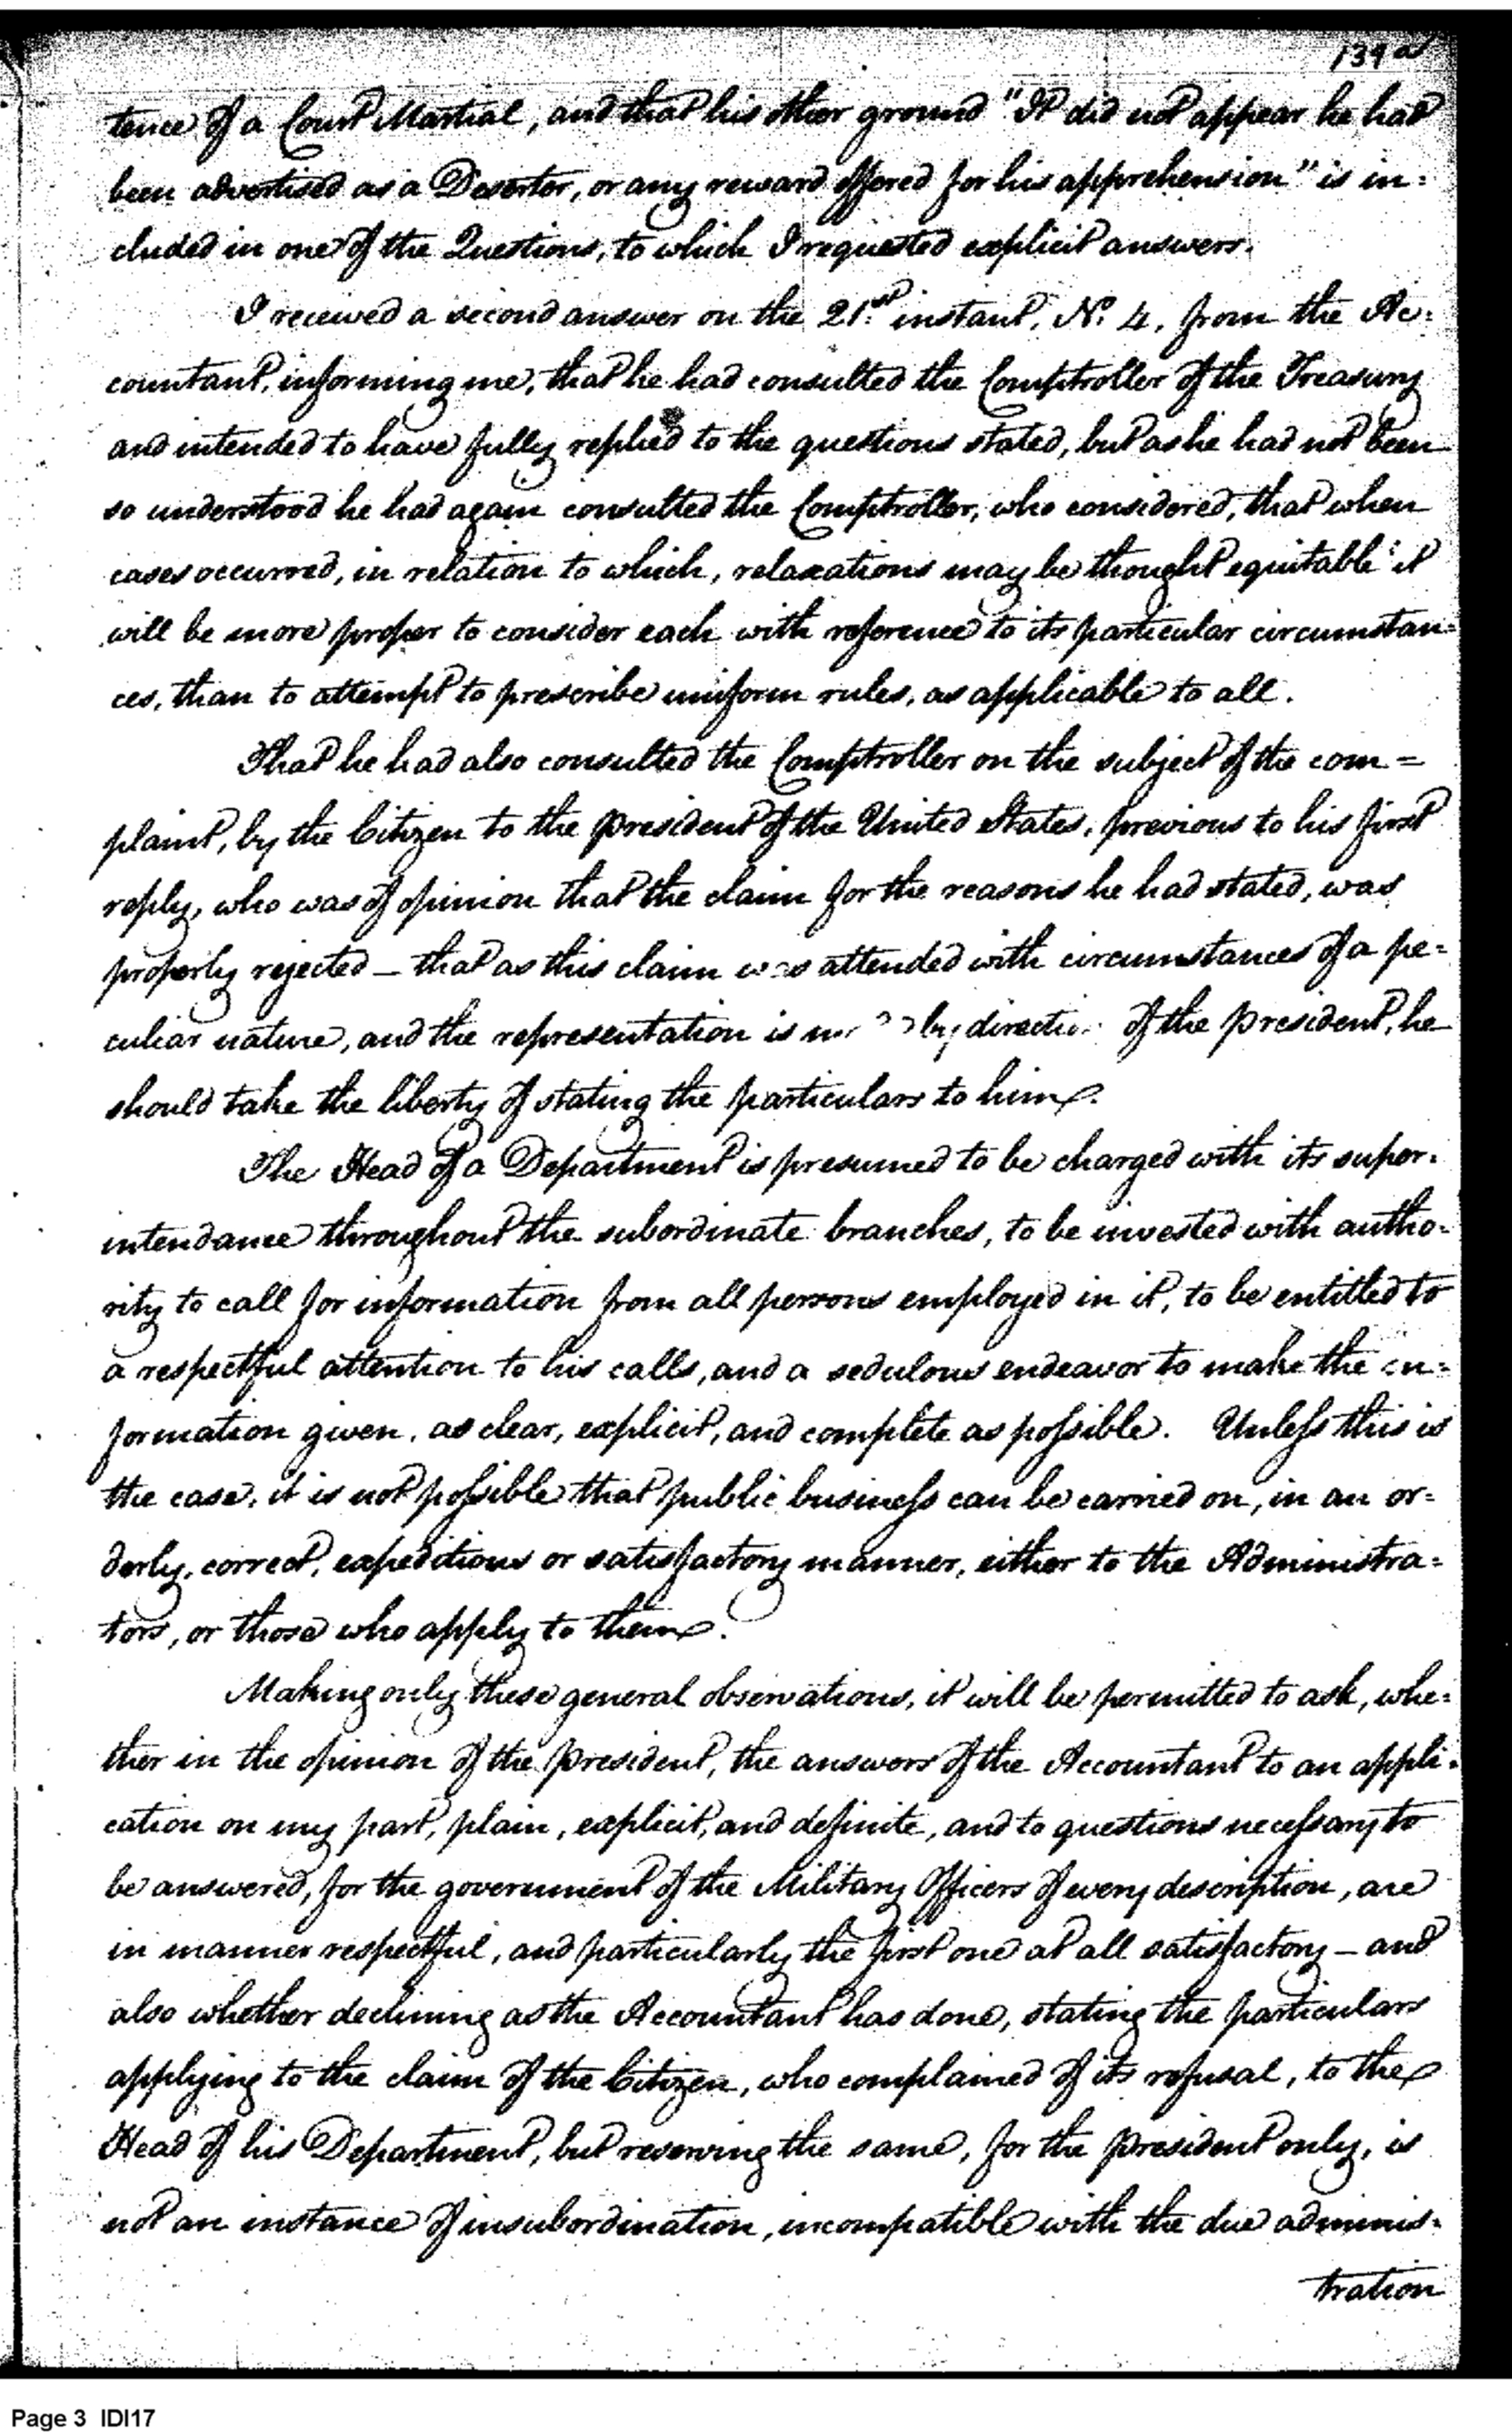 139a
tence of a Court Martial, and that his other ground "It did not appear he had
been advertised as a Deserter, or any reward offered for his apprehension" is in=
cluded in one of the Questions, to which I requested explicit answers.
I received a second answer on the 21.st instant, No. 4, from the Ac=
countant, informing me, that he had consulted the Comptroller of the Treasury
and intended to have fully replied to the questions stated, but as he had not been
so understood he had again consulted the Comptroller, who considered, that when
cases occurred, in relation to which, relaxations may be thought equitable "it
will be more proper to consider each with reference to its particular circumstan=
ces, than to attempt to prescribe uniform rules, as applicable to all.
That he had also consulted the Comptroller on the subject of the com=
plaint, by the Citizen to the President of the United States, previous to his first
reply, who was of opinion that the claim for the reasons he had stated, was
properly rejected — that as this claim was attended with circumstances of a pe=
culiar nature, and the representation is by direction of the President, he
should take the liberty of stating the particulars to him.
The Head of a Department is presumed to be charged with its super=
intendance throughout the subordinate branches, to be invested with autho=
rity to call for information from all persons employed in it, to be entitled to
a respectful attention to his calls, and a sedulous endeavor to make the in=
formation given, as clear, explicit, and complete as possible. Unless this is
the case, it is not possible that public business can be carried on, in an or=
derly, correct, expeditious or satisfactory manner, either to the Administra=
tors, or those who apply to them.
Making only these general observations, it will be permitted to ask, whe=
ther in the opinion of the President, the answers of the Accountant to an appli=
cation on my part, plain, explicit, and definite, and to questions necessary to
be answered, for the government of the Military Officers of every description, are
in manner respectful, and particularly the first one at all satisfactory — and
also whether declining as the Accountant has done, stating the particulars
applying to the claim of the Citizen, who complained of its refusal, to the
Head of his Department, but reserving the same, for the President only, is
not an instance of insubordination, incompatible with the due adminis=
tration
Page 3 IDI17